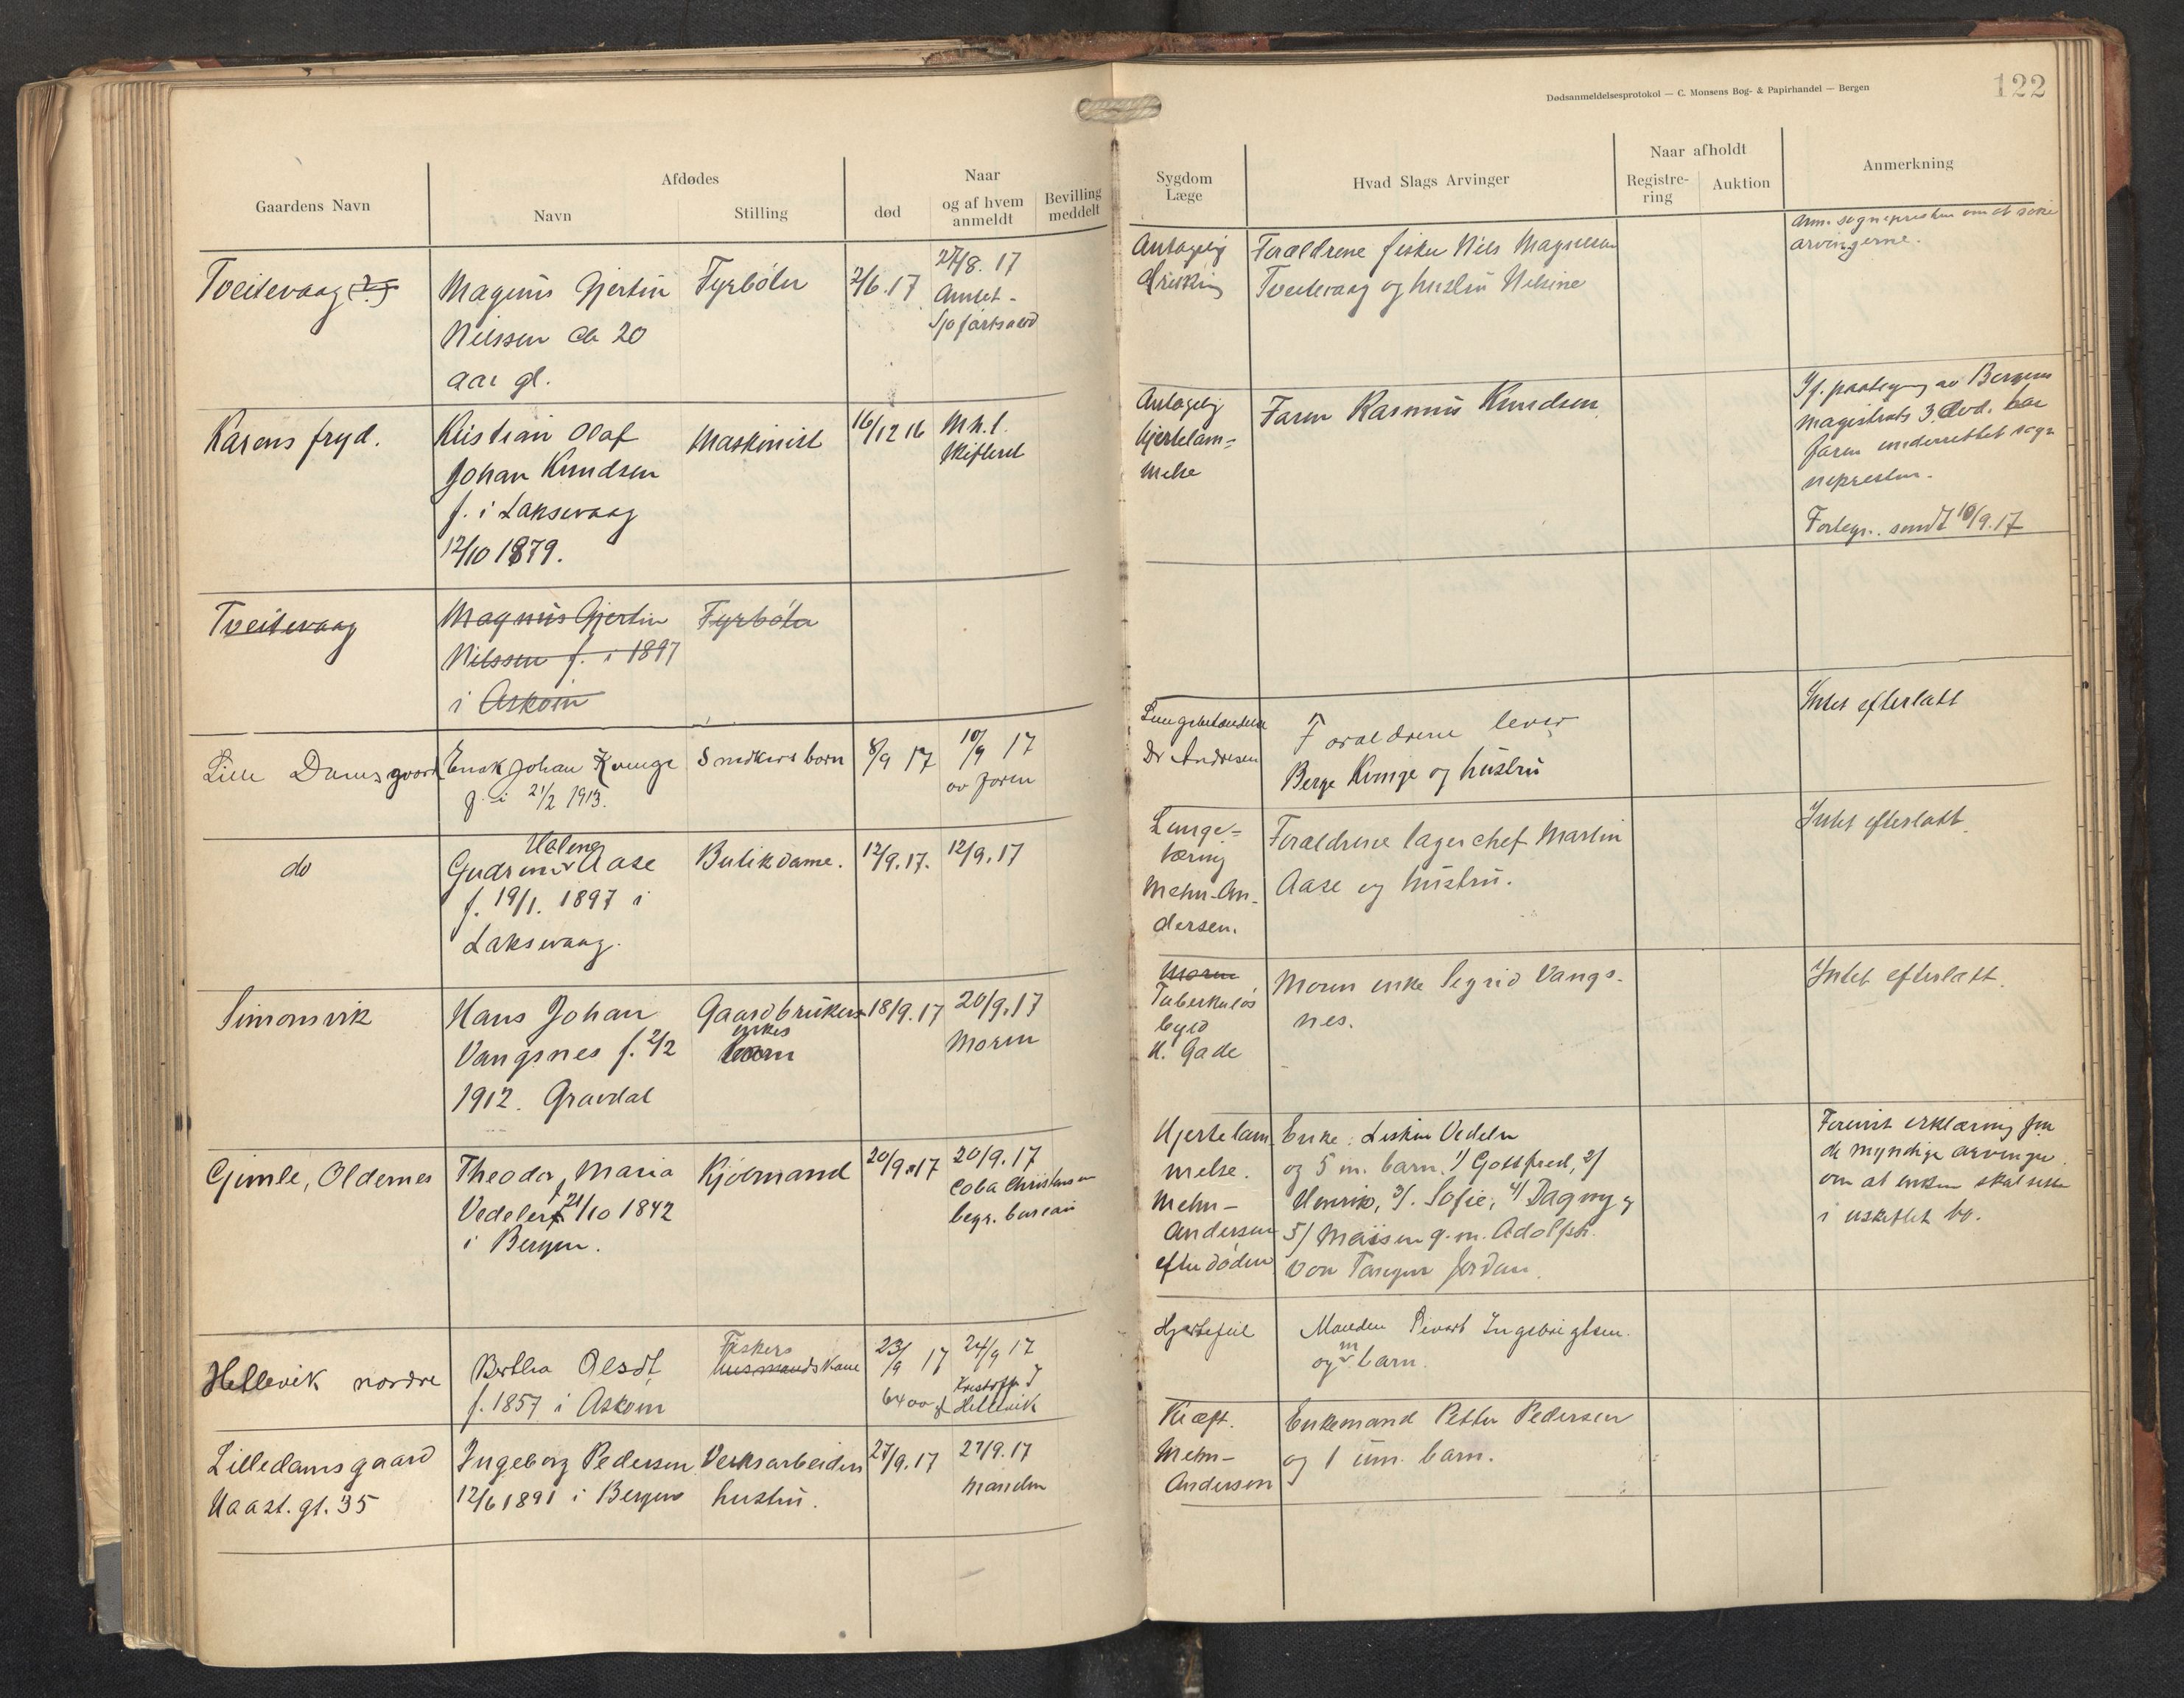 Dødsanmeldelsesprotokol — C. Monsens Bog- & Papirhandel — Bergen
122
Gaardens Navn
Afdødes
Navn
Stilling
Naar
død
og af hvem anmeldt
Bevilling meddelt
Sygdom
Læge
Hvad Slags Arvinger
Naar afholdt
Registre-
ring
Auktion
Anmerkning
Tveitevaag (?)
Magnus Gjertin
Nilssen ca 20
aar gl.
Fyrbøter
2/6.17
27/8.17
Amtet -
Sjøfartsavd
Antagelig
drukning
Forældrene fisker Nils Magnussen
Tveitevaag og hustru Nilsine
Anm. sognepresten om at søke
arvingerne.
Karens fryd.
Kristian Olaf
Johan Knudsen
f. i Laksevaag
12/10 1879.
Maskinist
16/12 16
M.h.t.
skifteret
Antagelig
hjertelam-
melse
Faren Rasmus Knudsen
If. paategn av Bergens
magistrats 3. avd. har
faren underrettet sogn
nepresten.
Forlegn. sendt 10/9.17
Tveitevaag
Magnus Gjertin
Nilssen f. i 1897
i Askøin
Fyrbøter
Lille Damsgaard
Enok Johan Kvinge
f. i 21/2 1913.
Snedkers barn
8/9 17
10/9 17
av faren
Lungebetændelse
Dr Andresen
Forældrene lever
Berge Kvinge og hustru
Intet efterlatt
do
Helene
Gudrun Aase
f. 19/1. 1897 i
Laksevaag.
Butikdame.
12/9.17.
12/9.17
Lunge-
tæring
Mehn-An-
dersen.
Forældrene lagerchef Martin
Aase og hustru.
Intet efterlatt.
Simonsvik
Hans Johan
Vangsnes f. 2/2
1912. Gravdal
Gaardbrukers
enkes
barn
18/9.17
20/9.17
Moren
Moren
Tuberkuløs
H. Gade
Moren enke Sigrid Vangs-
nes.
Intet efterlatt.
Gimle, Oldernes
Theodor Maria
Vedeler f. 21/10 1842
i Bergen.
Kjøbmand
20/9.17
20/9.17
Coba Christensen
begr. bureau
Hjertelam
melse.
Mehn-
Andersen
efter døden
Enke: Liskin Vedeler
og 5 m. barn. 1/ Gottfred, 2/
Henrik, 3/. Sofie, 4/ Dagny og
5/ Maisen g.m. Adolph
von Tangen Jordan.
Forevist erklæring fra
de myndige arvinger
om at enken skal sitte
i uskiftet bo.
Hellevik nordre
Berthe Olsdt
f. 1857 i Askøin
Fiskers
husmands kone
23/9 17
24/9 17
Kristoffer J
Hellevik
Hjertefeil
Manden Sivert Ingebrigtsen.
m
og barn.
Lilledamsgaard
Haast. gt. 35
Ingeborg Pedersen
12/6 1891 i Bergen
Verksarbeiders
hustru.
27/9.17
27/9.17
manden
Kræft.
Mehn-
Andersen
Enkemand Petter Pedersen
og 1 um. barn.